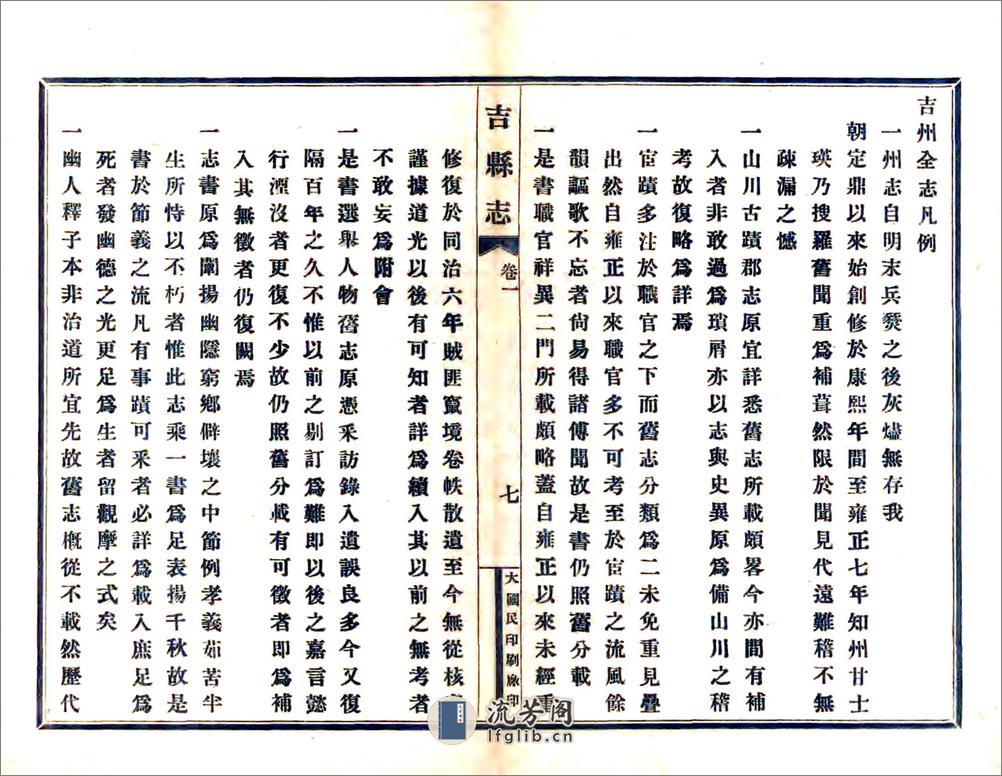 吉州全志凡例
一州志自明末兵燹之後灰燼無存我
朝定鼎以來始創修於康熙年間至雍正七年知州甘士
瑛乃搜羅舊聞重爲補葺然限於聞見代遠難稽不無
疎漏之憾
一山川古蹟郡志原宜詳悉舊志所載頗畧今亦間有補
入者非敢過爲瑣屑亦以志與史異原爲備山川之稽
考故復略爲詳焉
一宦蹟多注於職官之下而舊志分類爲二未免重見疊
出然自雍正以來職官多不可考至於宦蹟之流風餘
韻謳歌不忘者尙易得諸傳聞故是書仍照舊分載
一是書職官祥異二門所載頗略蓋自雍正以來未經重
吉縣志
卷一
七
大國民印刷廠印
修復於同治六年賊匪竄境卷帙散遺至今無從核
謹據道光以後有可知者詳爲續入其以前之無考者
不敢妄爲附會
一是書選舉人物舊志原憑釆訪錄入遺誤良多今又復
隔百年之久不惟以前之剔訂爲難即以後之嘉言懿
行湮沒者更復不少故仍照舊分載有可徵者即爲補
入其無徵者仍復闕焉
一志書原爲闡揚幽隱窮鄉僻壤之中節例孝義茹苦半
生所恃以不朽者惟此志乘一書爲足表揚千秋故是
書於節義之流凡有事蹟可釆者必詳爲載入庶足爲
死者發幽德之光更足爲生者留觀摩之式矣
一幽人釋子本非治道所宜先故舊志槪從不載然歷代
流芳閣
lfglib.cn